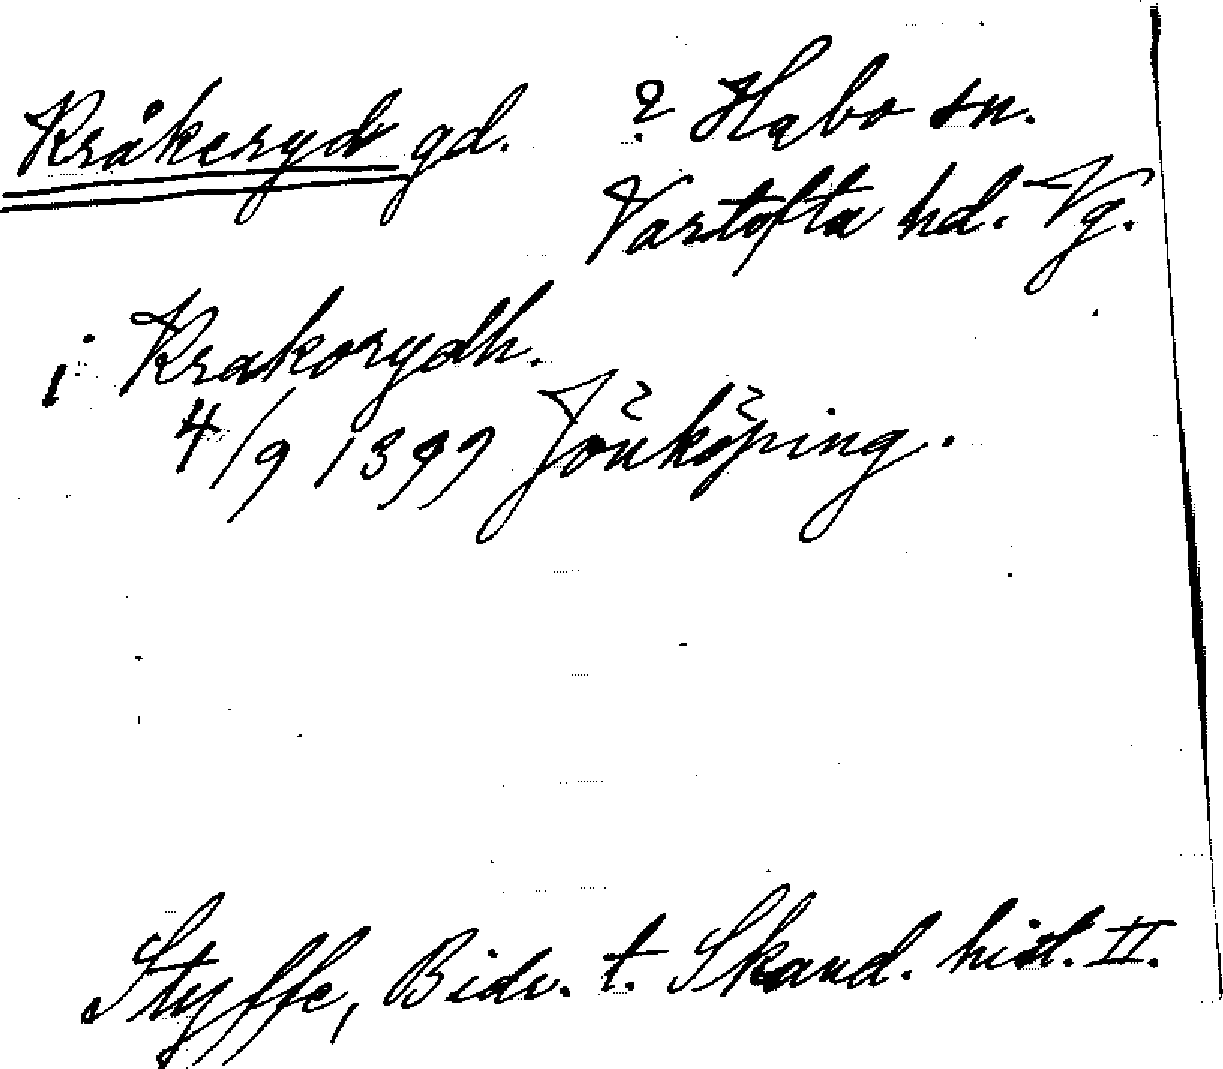 Kråkeryd gd. ? Habo sn.
Vartofta hd. Vg.
i Krakorydh.
4/9 1399 Jönköping.
Styffe, Bidr. t. Skand. hist. II.